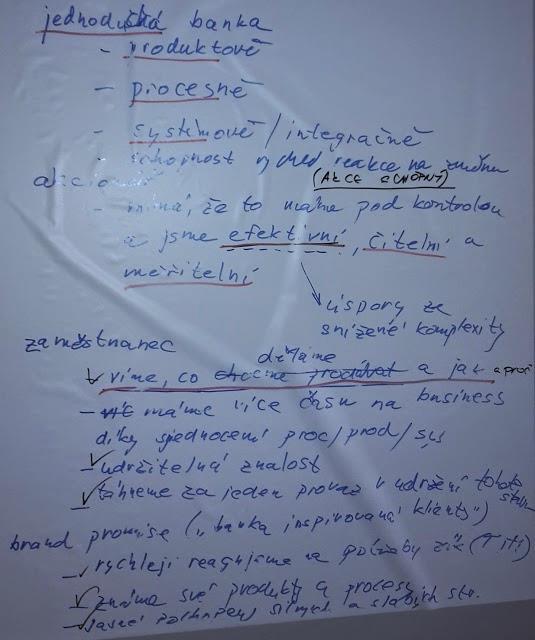 jednoduchá banka
- produktově
- procesně
- systémově / integračně
schopnost rychlé reakce na změnu
(AKCE SCHOPNÝ)
akcionář
- vnímá, že to máme pod kontrolou
a jsme efektivní, čitelní a
měřitelní
úspory ze
snížené komplexity
zaměstnanec
děláme
víme, co chceme prodávat a jak a proč
- víc máme více času na business
díky sjednocení proc/prod/sys
- udržitelná znalost
- táhneme za jeden provaz v udržení tohoto
stavu
brand promise („banka inspirovaná klienty")
- rychleji reagujeme na potřeby zák (TTM)
- známe své produkty a procesy
- jasné pochopení silných a slabých str.